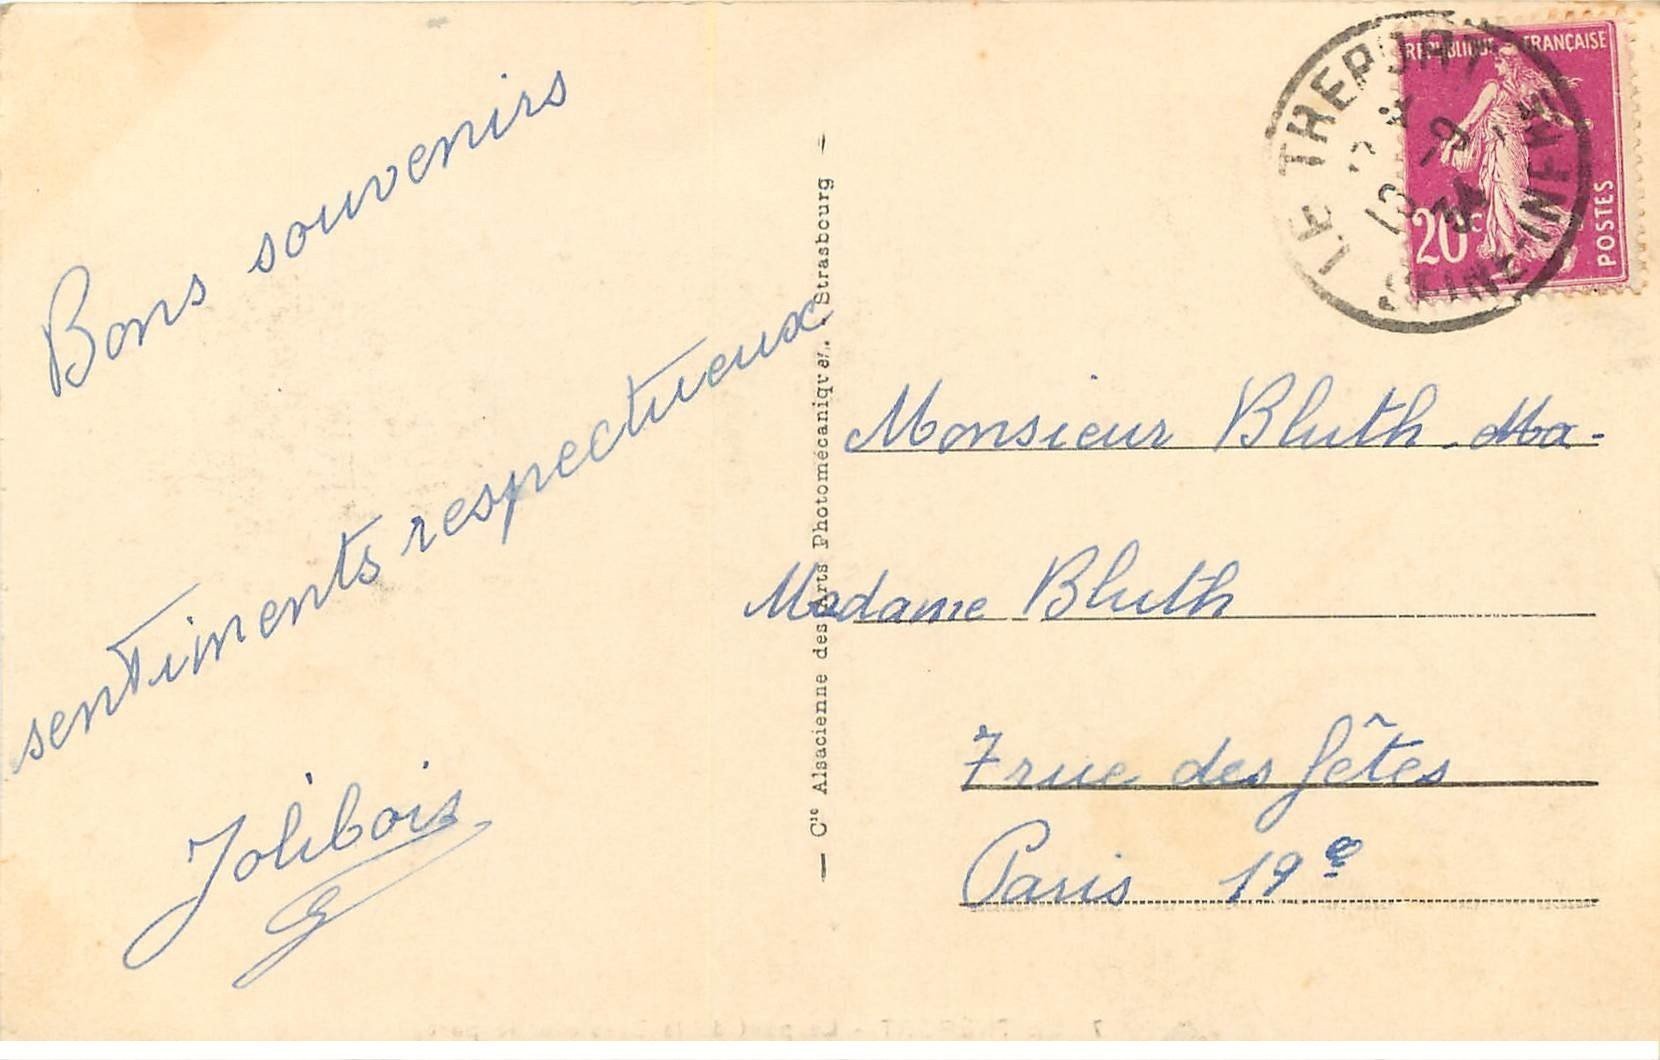 Bons souvenirs
sentiments respectueux
Jolibois
— Cie Alsacienne des Arts Photomécaniques. Strasbourg —
RÉPUBLIQUE FRANÇAISE
20c
POSTES
LE TREPORT
SEINE-INFRE
-9
34
Monsieur Bluth
Madame Bluth
7 rue des fêtes
Paris 19e